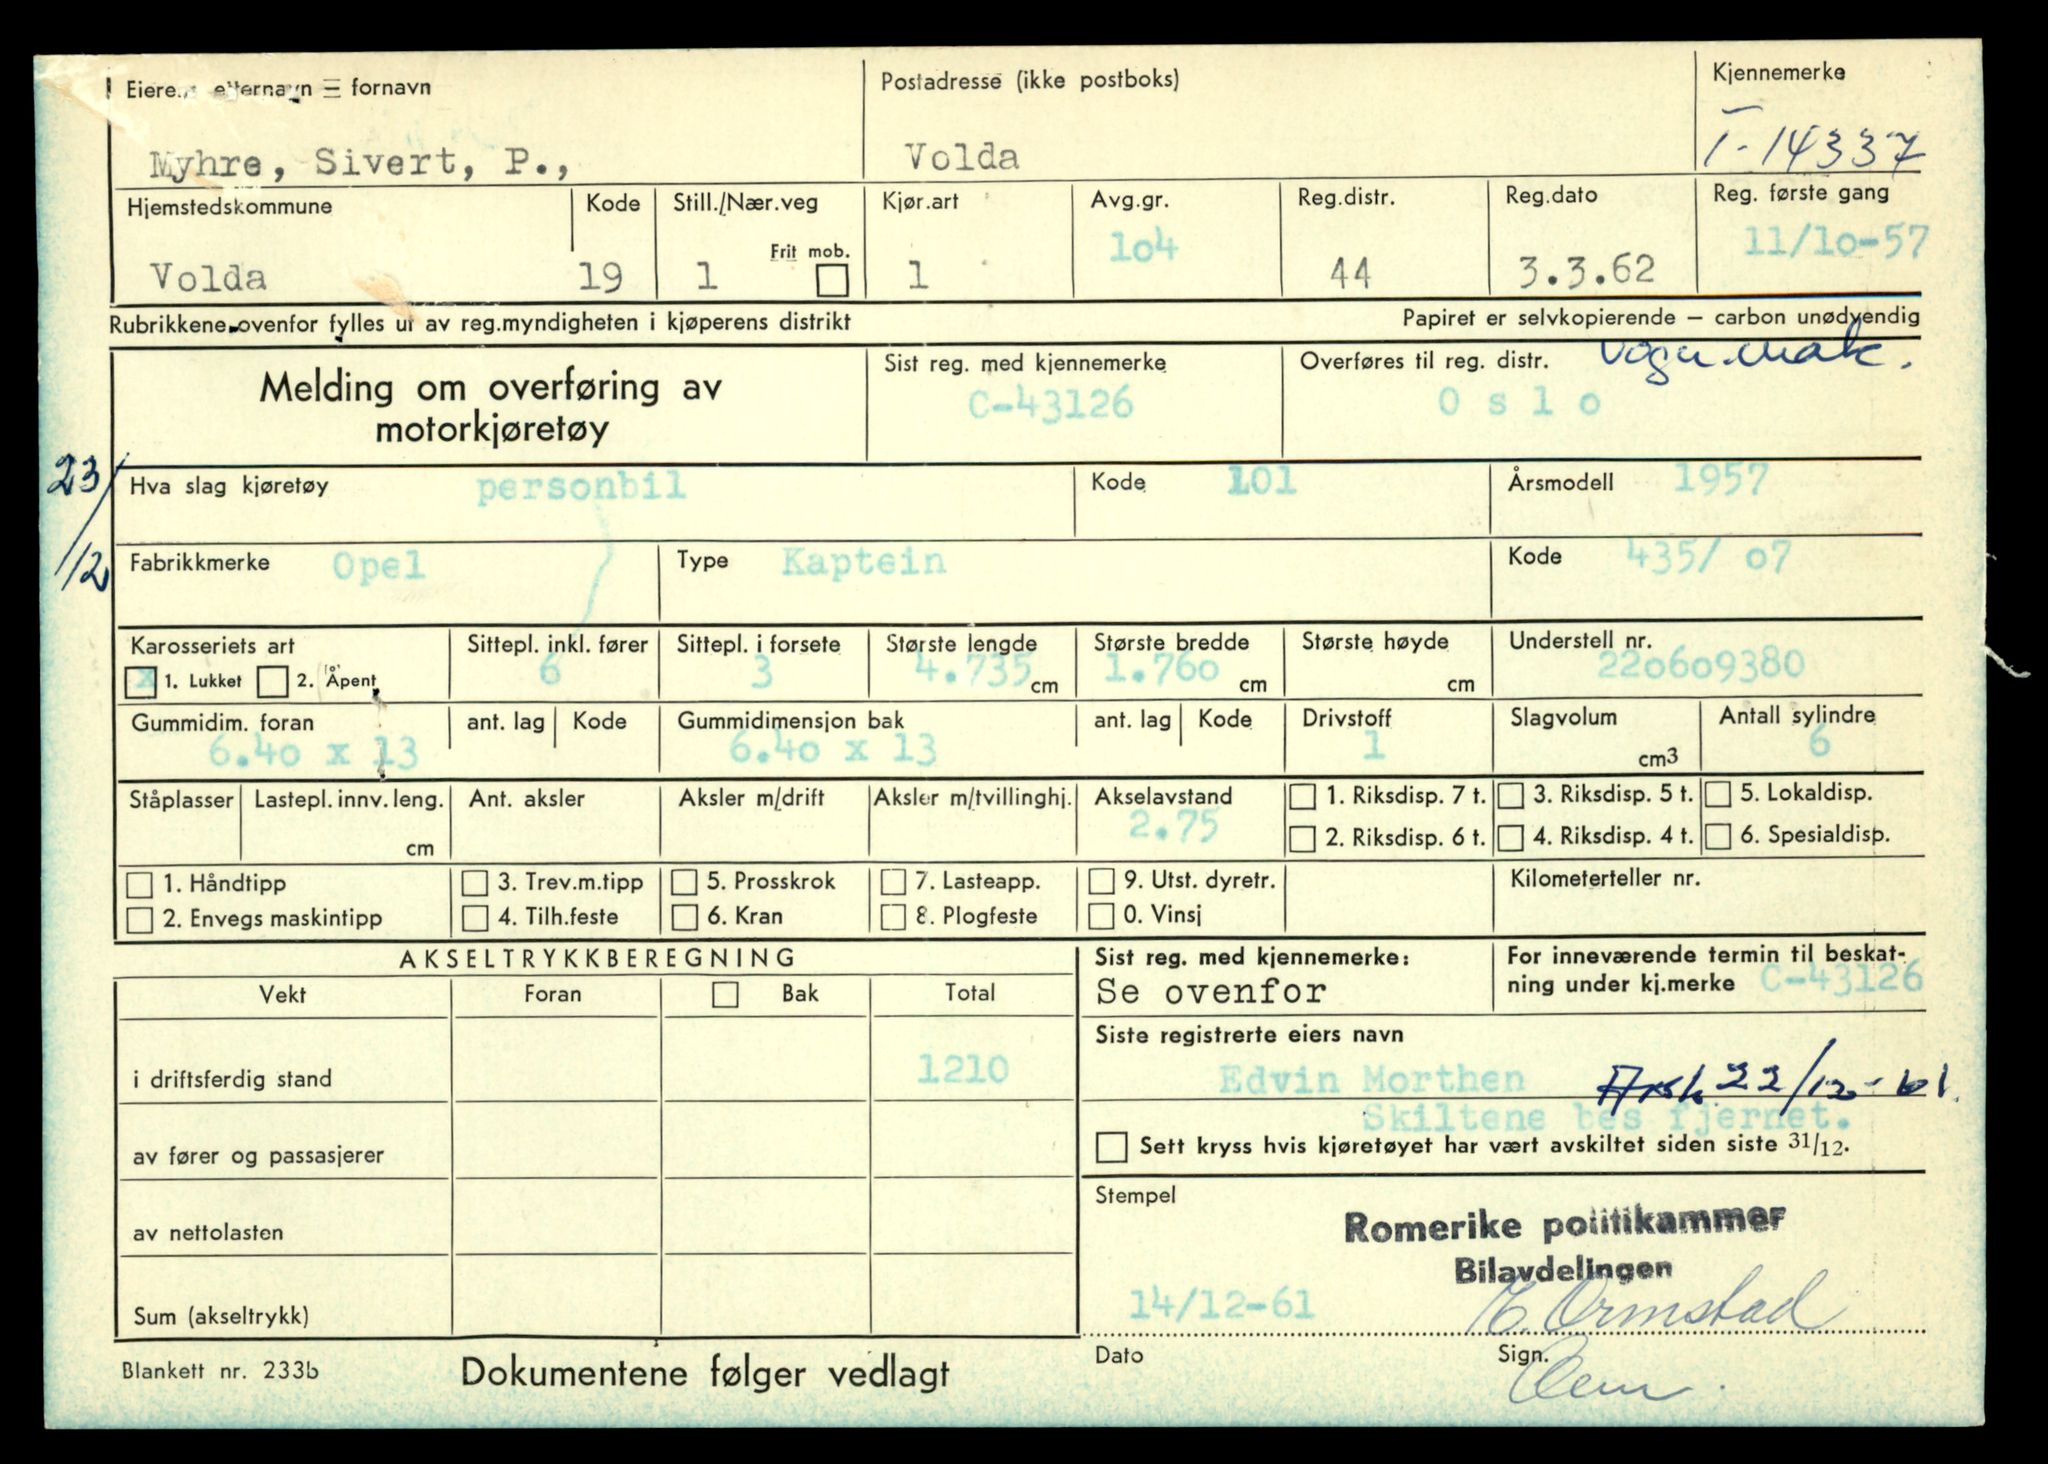 Eierens etternavn – fornavn
Postadresse (ikke postboks)
Kjennemerke
Myhre, Sivert, P.,
Volda
T-14337
Hjemstedskommune
Kode
Still./Nær.veg
Kjør.art
Avg.gr.
Reg.distr.
Reg.dato
Reg. første gang
Frit mob.
Volda
19
1
1
104
44
3.3.62
11/10-57
Rubrikkene ovenfor fylles ut av reg.myndigheten i kjøperens distrikt
Papiret er selvkopierende – carbon unødvendig
Melding om overføring av
motorkjøretøy
Sist reg. med kjennemerke
C-43126
Overføres til reg. distr.
Oslo
23/12
Hva slag kjøretøy personbil
Kode 101
Årsmodell 1957
Fabrikkmerke Opel
Type Kaptein
Kode 435/ 07
Karosseriets art
Sittepl. inkl. fører
Sittepl. i forsete
Største lengde
Største bredde
Største høyde
Understell nr.
x 1. Lukket 2. Åpent
6
3
4.735 cm
1.760 cm
cm
220609380
Gummidim. foran
ant. lag
Kode
Gummidimensjon bak
ant. lag
Kode
Drivstoff
Slagvolum
Antall sylindre
6.40 x 13
6.40 x 13
1
cm3
6
Ståplasser
Lastepl. innv. leng.
cm
Ant. aksler
Aksler m/drift
Aksler m/tvillinghj.
Akselavstand
2.75
1. Riksdisp. 7 t.
3. Riksdisp. 5 t.
5. Lokaldisp.
2. Riksdisp. 6 t.
4. Riksdisp. 4 t.
6. Spesialdisp.
1. Håndtipp
3. Trev.m.tipp
5. Prosskrok
7. Lasteapp.
9. Utst. dyretr.
Kilometerteller nr.
2. Envegs maskintipp
4. Tilh.feste
6. Kran
8. Plogfeste
0. Vinsj
AKSELTRYKKBEREGNING
Vekt
Foran
Bak
Total
i driftsferdig stand
1210
av fører og passasjerer
av nettolasten
Sum (akseltrykk)
Sist reg. med kjennemerke:
Se ovenfor
For inneværende termin til beskat-
ning under kj.merke C-43126
Siste registrerte eiers navn
Edvin Morthen
22/12-61.
Skiltene bes fjernet.
Sett kryss hvis kjøretøyet har vært avskiltet siden siste 31/12.
Stempel
Romerike politikammer
Bilavdelingen
14/12-61
Ormstad
Dato
Sign.
Blankett nr. 233b
Dokumentene følger vedlagt